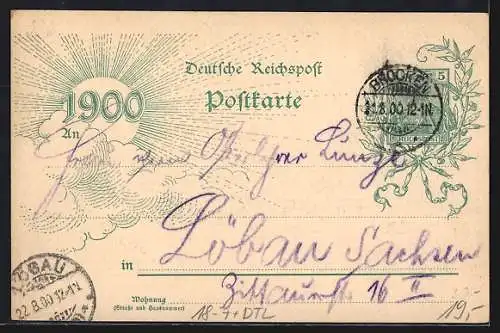 Deutsche Reichspost
Postkarte
1900
BROCKEN
21.8.00.12-1N.
5
An
Oberlehrer Lunze
Löbau Sachsen
in
Zittauerstr 16 II
Wohnung
(Straße und Hausnummer)
LÖBAU
22.8.00.12-1N
18-7+DTL
19,-